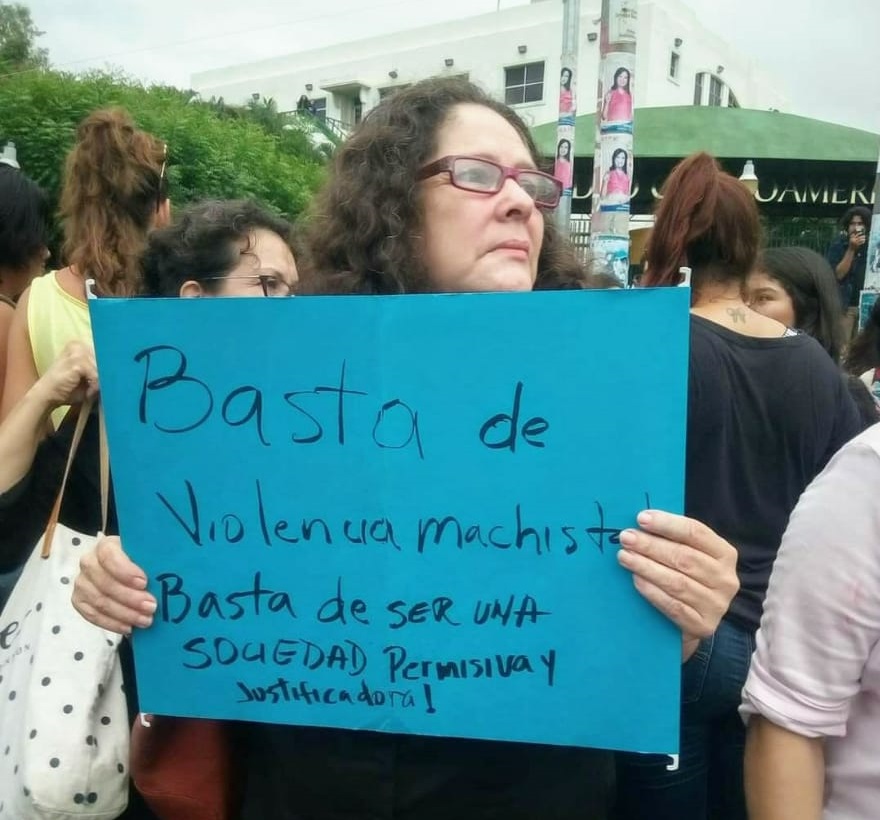 OAMER
Basta de
Violencia machista!
Basta de SER UNA
SOCIEDAD Permisiva y
Justificadora!